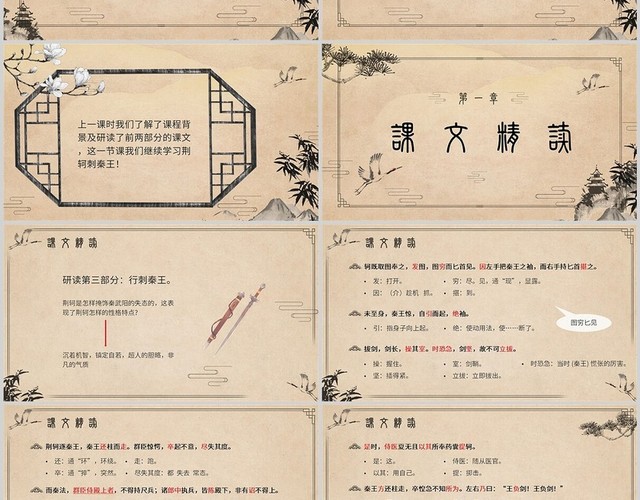 上一课时我们了解了课程背
景及研读了前两部分的课文
，这一节课我们继续学习荆
轲刺秦王！
第一章
课文精读
课文精读
研读第三部分：行刺秦王。
荆轲是怎样掩饰秦武阳的失态的，这表
现了荆轲怎样的性格特点？
沉着机智，镇定自若，超人的胆略，非
凡的气质
课文精读
轲既取图奉之，发图，图穷而匕首见。因左手把秦王之袖，而右手持匕首揕之。
• 发：打开。 • 穷：尽。见，通“现”，显露。
• 因：（介）趁机 抓。 • 揕：刺。
未至身，秦王惊，自引而起，绝袖。
• 引：指身子向上起。 • 绝：使动用法，使……断了。
图穷匕见
拔剑，剑长，操其室。时恐急，剑坚，故不可立拔。
• 操：握住。 • 室：剑鞘。 • 时恐急：当时 (秦王) 慌张的厉害。
• 坚：插得紧。 • 立拔：立即拔出。
课文精读
荆轲逐秦王，秦王还柱而走。群臣惊愕，卒起不意，尽失其度。
• 还：通“环”，环绕。 • 走：跑。
• 卒：通“猝”，突然。 • 尽失其度：都 失去 常态。
而秦法，群臣侍殿上者，不得持尺兵；诸郎中执兵，皆陈殿下，非有诏不得上。
课文精读
是时，侍医夏无且以其所奉药囊提轲。
• 是：这。 • 侍医：随从医官。
• 以其：用自己。 • 提：掷击。
秦王方还柱走，卒惶急不知所为。左右乃曰：“王负剑！王负剑！”